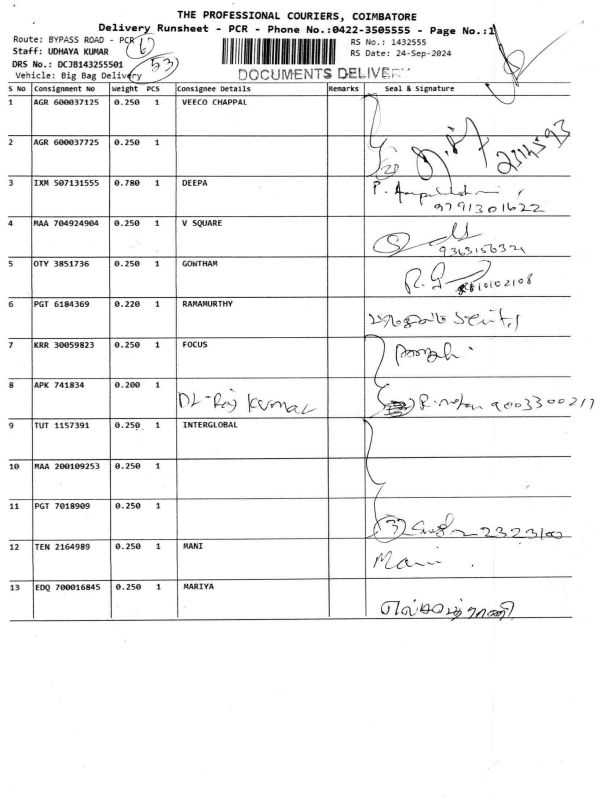 THE PROFESSIONAL COURIERS, COIMBATORE
Delivery Runsheet - PCR - Phone No.:0422-3505555 - Page No.:1
Route: BYPASS ROAD - PCR
6
RS No.: 1432555
Staff: UDHAYA KUMAR
RS Date: 24-Sep-2024
DRS No.: DCJB143255501
53
Vehicle: Big Bag Delivery
DOCUMENTS DELIVERY
S No Consignment No Weight PCS Consignee Details Remarks Seal & Signature
1 AGR 600037125 0.250 1 VEECO CHAPPAL
2 AGR 600037725 0.250 1
3 IXM 507131555 0.780 1 DEEPA
9791301622
4 MAA 704924904 0.250 1 V SQUARE
5 OTY 3851736 0.250 1 GOWTHAM
6 PGT 6184369 0.220 1 RAMAMURTHY
7 KRR 30059823 0.250 1 FOCUS
8 APK 741834 0.200 1 Dr-Raj Kumar
9003300217
9 TUT 1157391 0.250 1 INTERGLOBAL
10 MAA 200109253 0.250 1
11 PGT 7018909 0.250 1
3 2323100
12 TEN 2164989 0.250 1 MANI Mani
13 EDQ 700016845 0.250 1 MARIYA